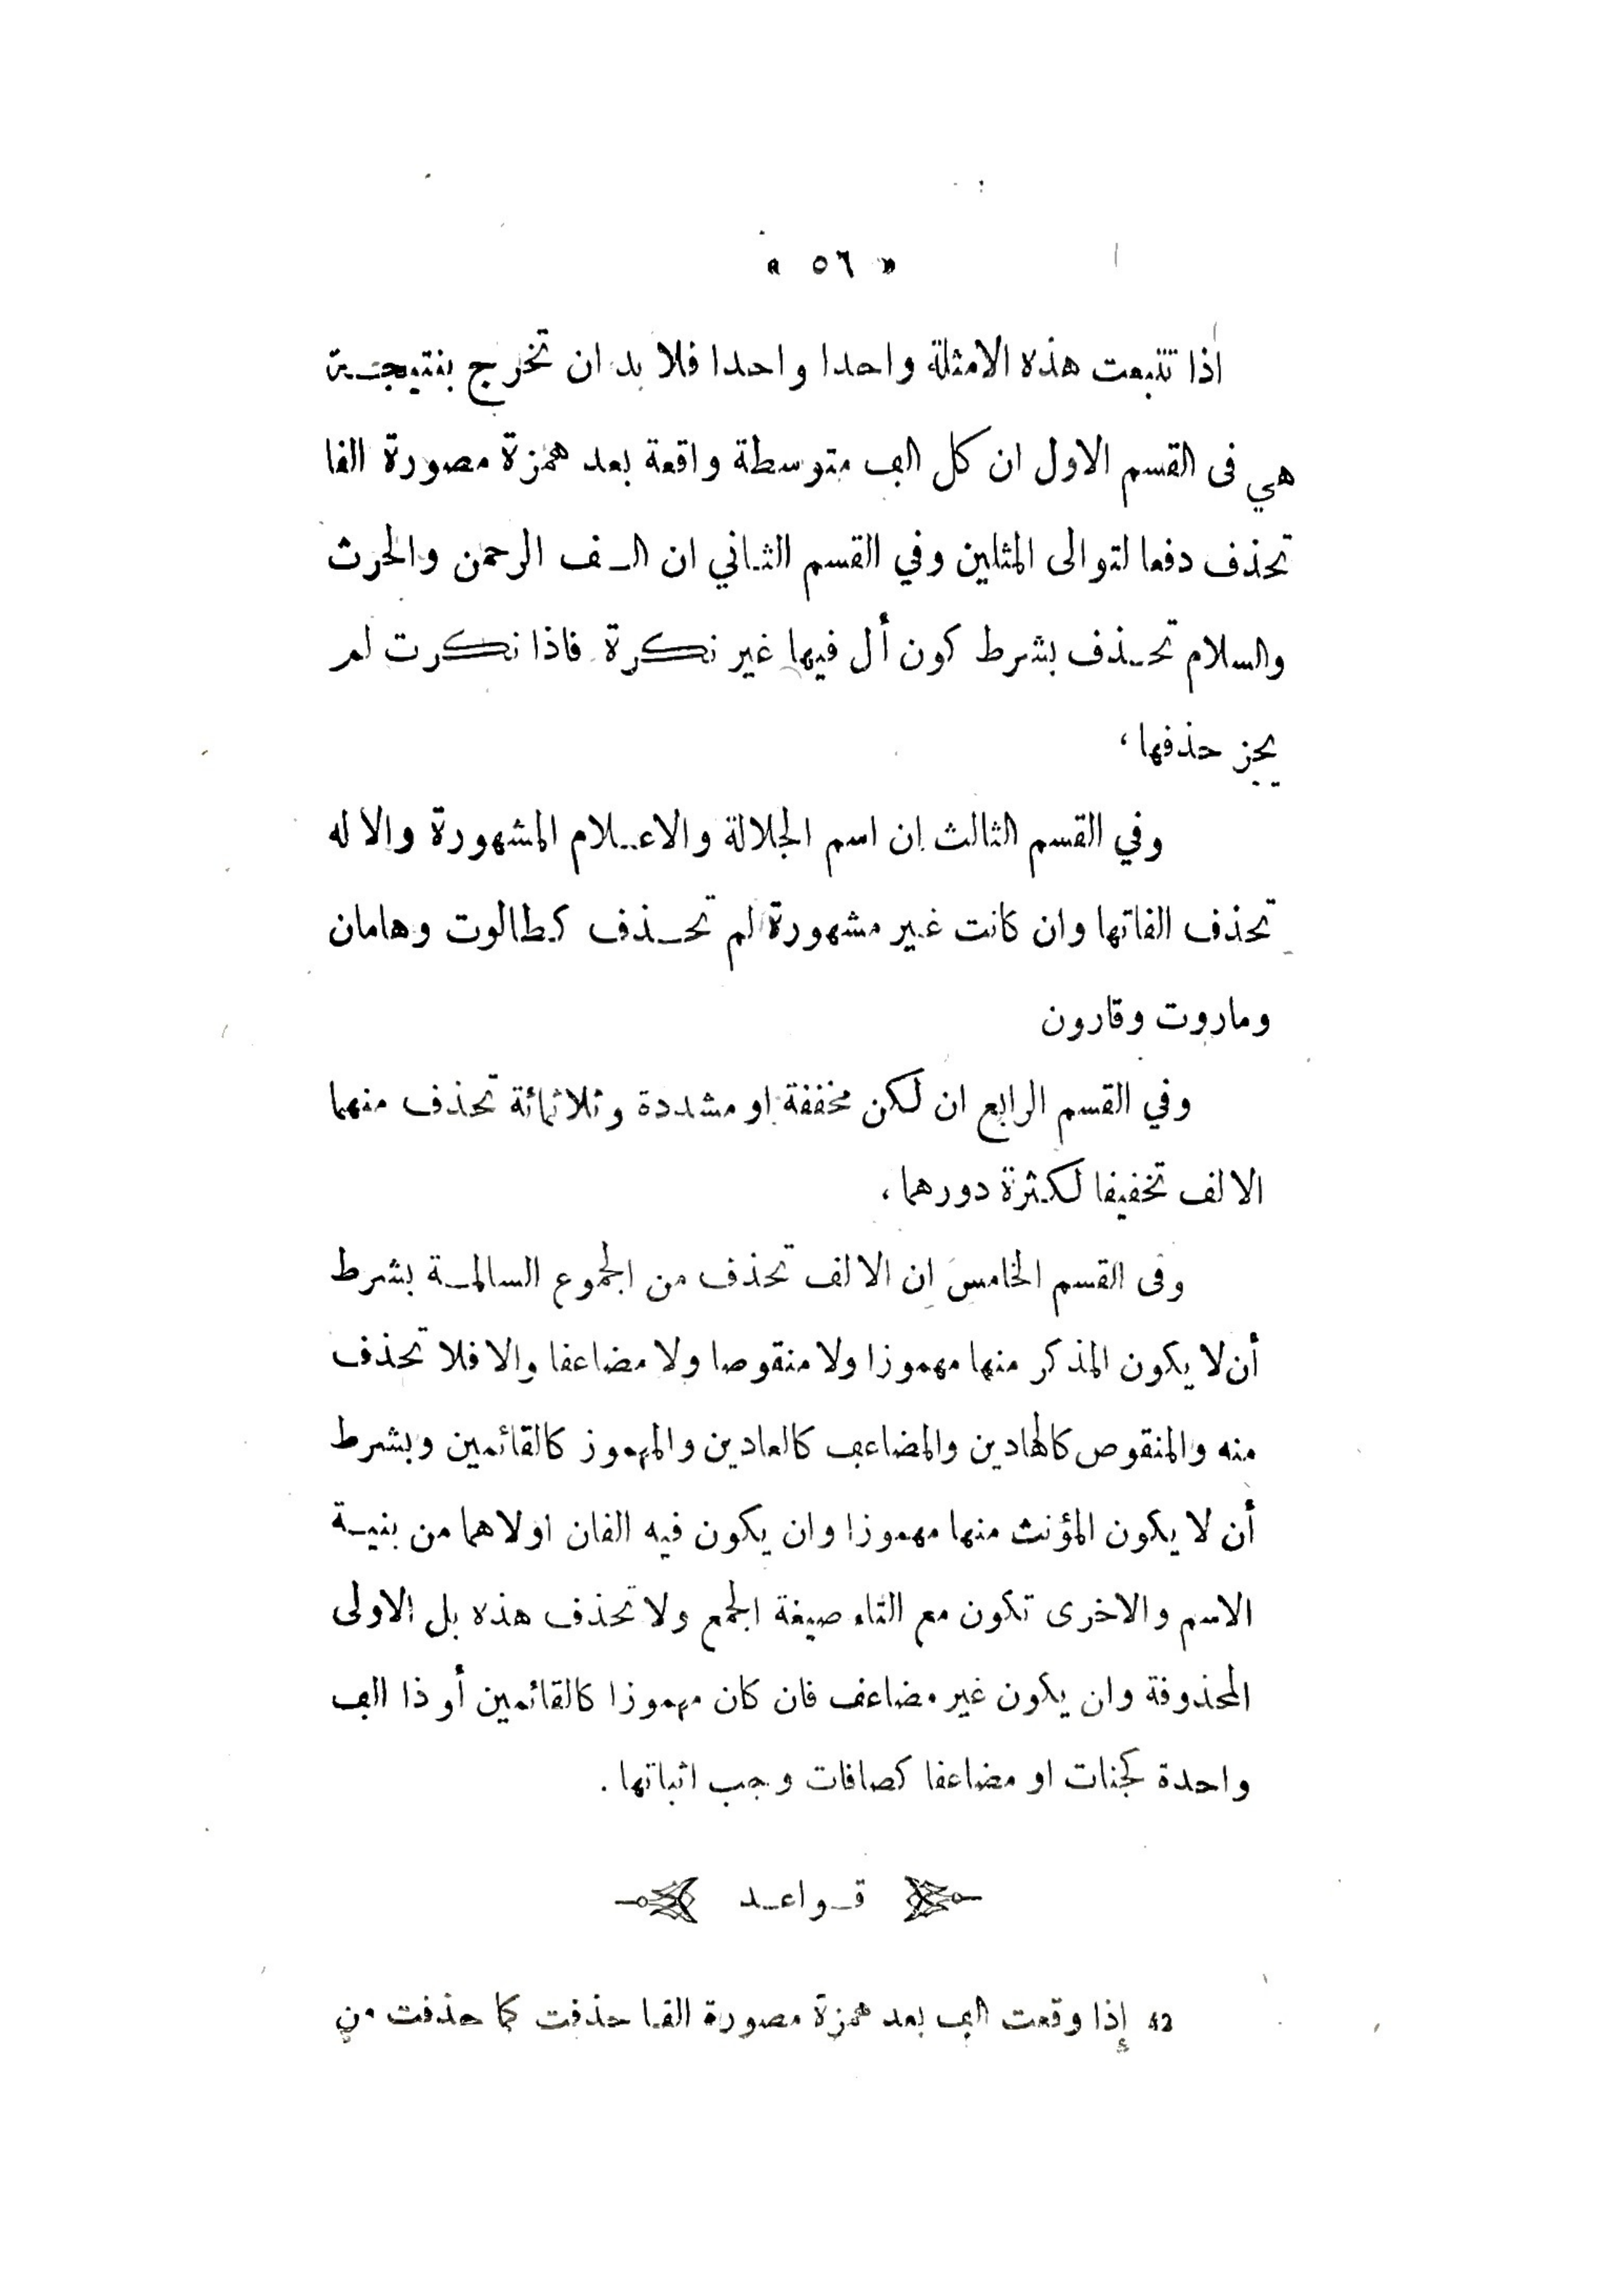 « ٥٦ »
اذا تتبعت هذه الامثلة واحدا واحدا فلا بد ان تخرج بنتيجة
هي فى القسم الاول ان كل الف متوسطة واقعة بعد همزة مصورة الفا
تحذف دفعا لتوالى المثلين وفي القسم الثاني ان الف الرحمن والحرث
والسلام تحذف بشرط كون أل فيها غير نكرة فاذا نكرت لم
يجز حذفها ،
وفي القسم الثالث ان اسم الجلالة والاعلام المشهورة والاله
تحذف الفاتها وان كانت غير مشهورة لم تحذف كطالوت وهامان
وماروت وقارون
وفي القسم الرابع ان لكن مخففة او مشددة وثلاثمائة تحذف منهما
الالف تخفيفا لكثرة دورهما ،
وفى القسم الخامس ان الالف تحذف من الجموع السالمة بشرط
أن لا يكون المذكر منها مهموزا ولا منقوصا ولا مضاعفا والا فلا تحذف
منه والمنقوص كالهادين والمضاعف كالعادين والمهموز كالقائمين وبشرط
أن لا يكون المؤنث منها مهموزا وان يكون فيه الفان اولاهما من بنية
الاسم والاخرى تكون مع التاء صيغة الجمع ولا تحذف هذه بل الاولى
المحذوفة وان يكون غير مضاعف فان كان مهموزا كالقائمين أو ذا الف
واحدة كجنات او مضاعفا كصافات وجب اثباتها .
قواعد
42 إذا وقعت الف بعد همزة مصورة الفا حذفت كما حذفت من